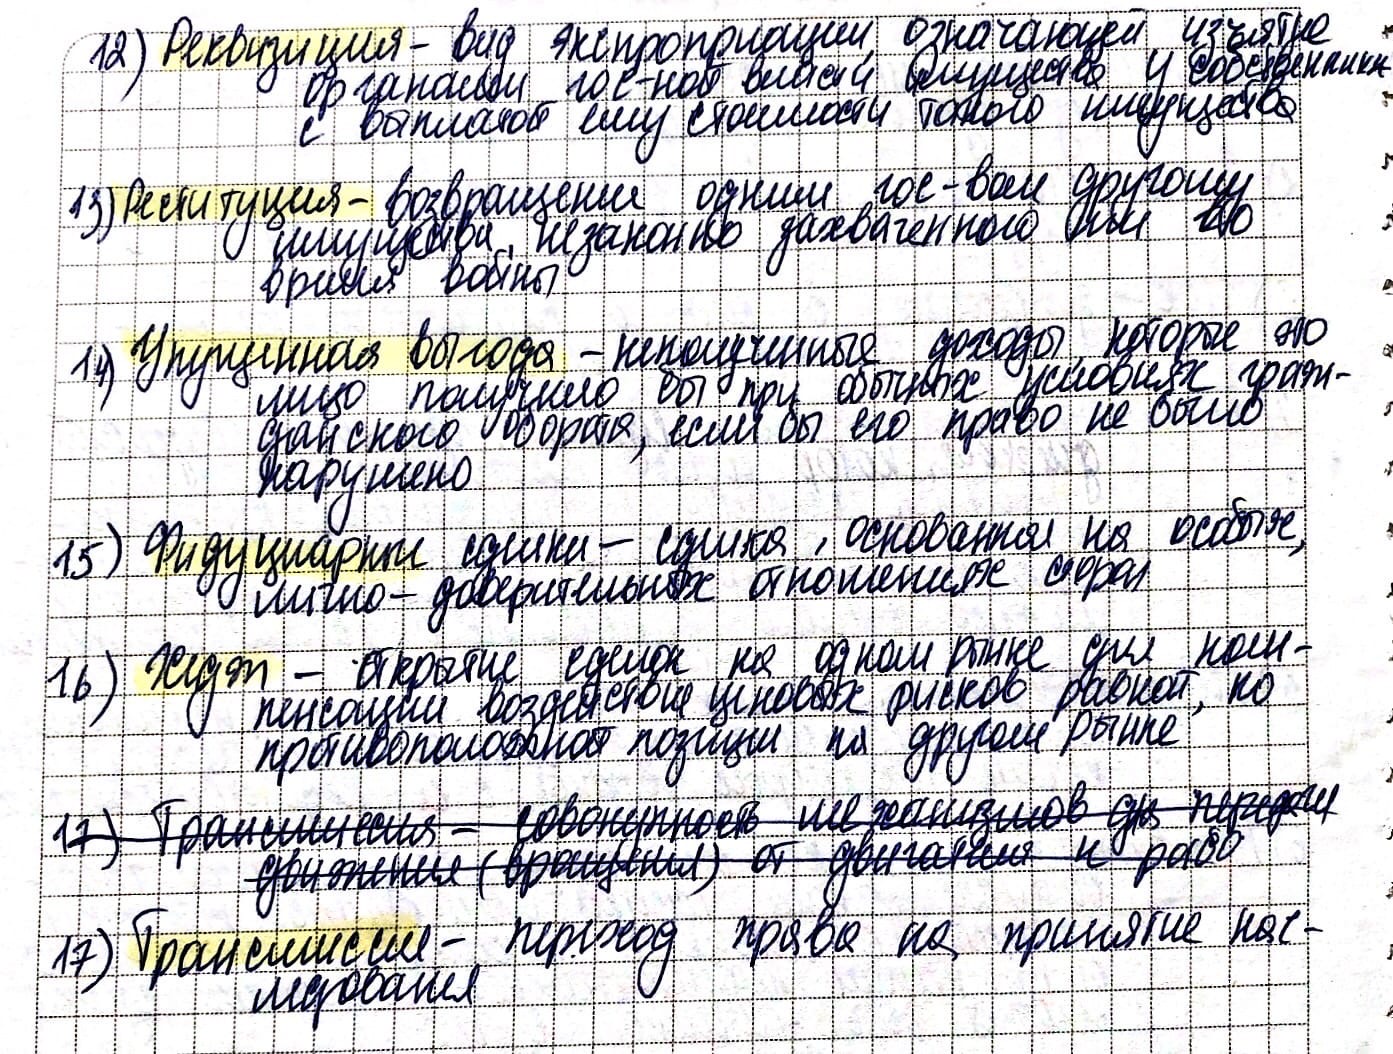 12) Реквизиция – вид экспроприации, означающей изъятие
органами гос-ной власти имущества у собственника
с выплатой ему стоимости такого имущества
13) Реституция – возвращение одним гос-вом другому
имущества, незаконно захваченного им во
время войны
14) Упущенная выгода – неполученные доходы, которые это
лицо получило бы при обычных условиях граж-
данского оборота, если бы его право не было
нарушено
15) Фидуциарные сделки – сделка, основанная на особых,
лично-доверительных отношениях сторон
16) Хедж – открытие сделок на одном рынке для ком-
пенсации воздействия ценовых рисков равной, но
противоположной позиции на другом рынке
17) Трансмиссия – совокупность механизмов для передачи
движения (вращения) от двигателя к рабо
17) Трансмиссия – переход права на принятие нас-
ледования